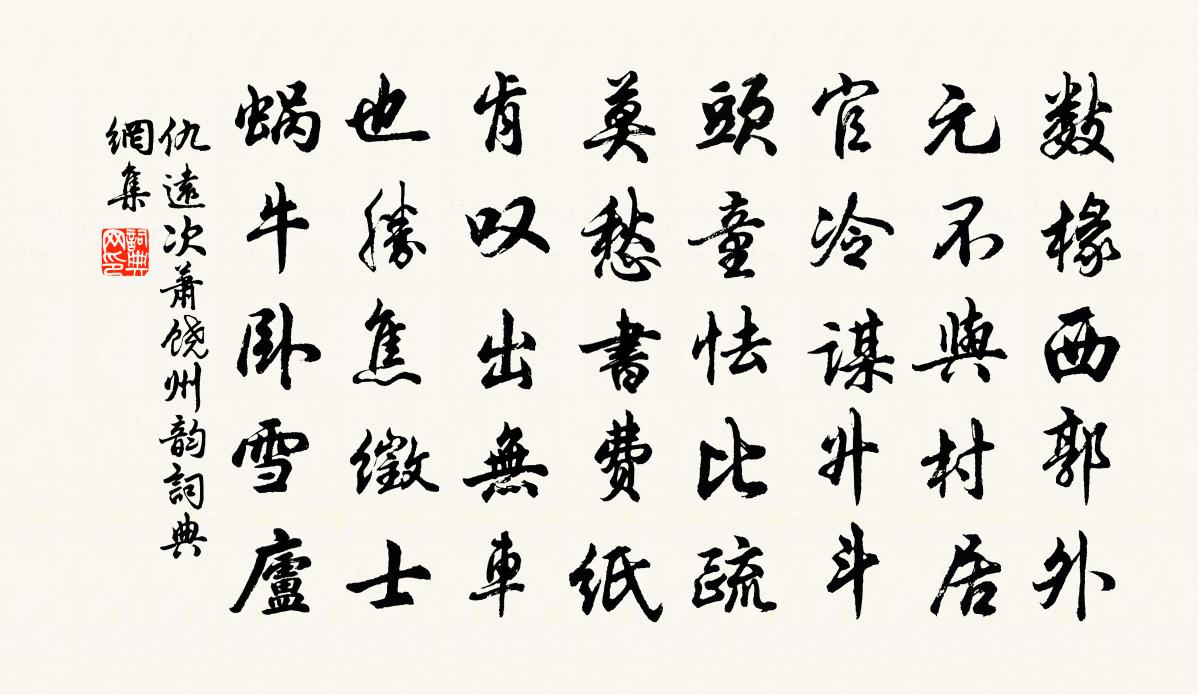 数椽西郭外
元不與村居
官冷謀升斗
頭童怯比疏
莫愁書費紙
肯叹出無車
也勝焦徵士
蜗牛卧雪廬
仇遠次萧饶州韵詞典
網集
詞典
网印